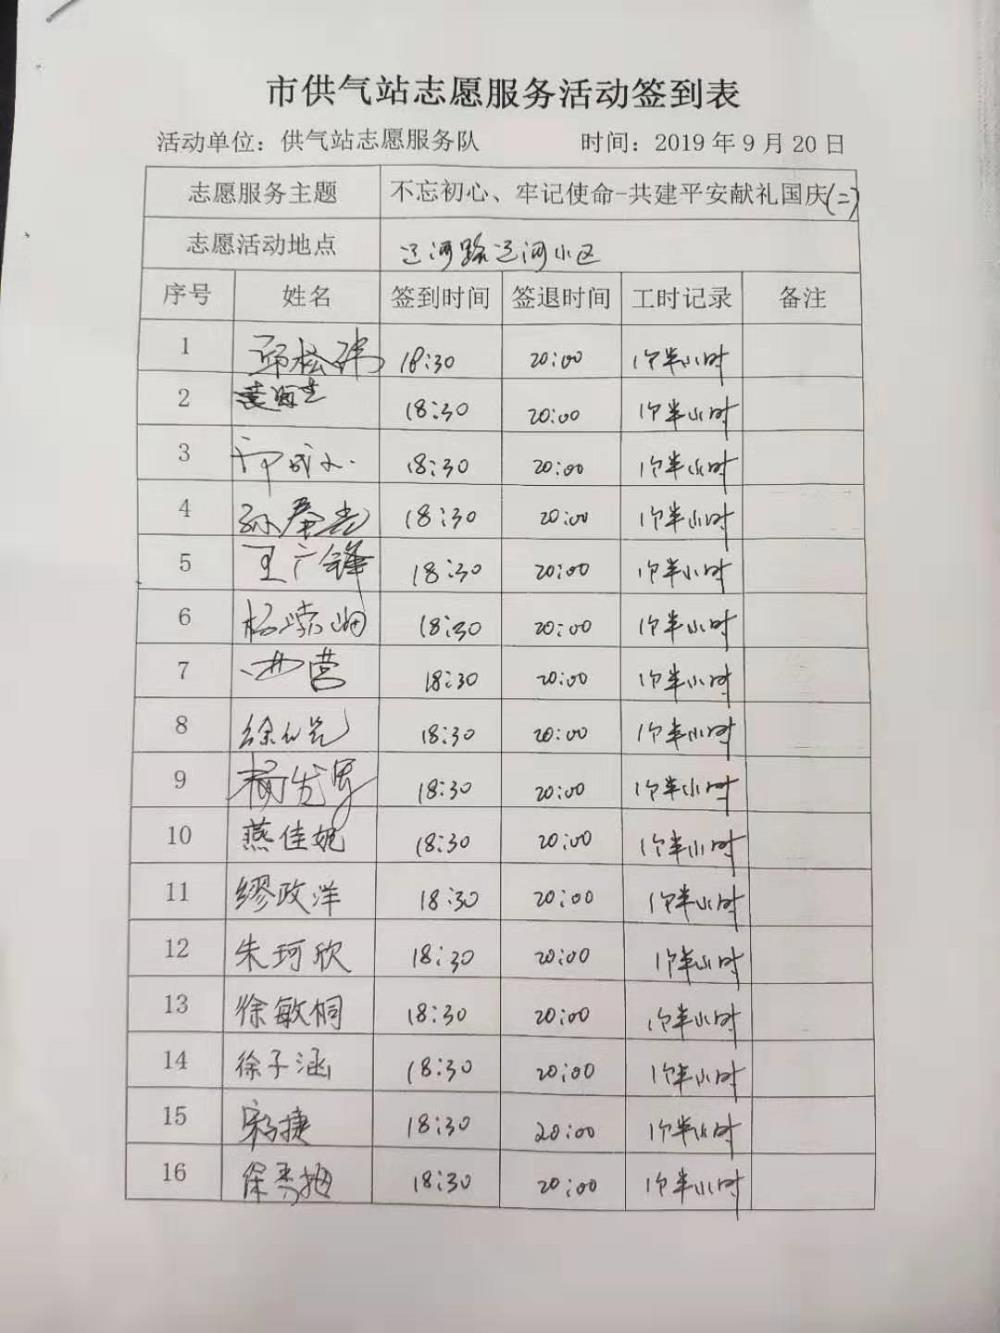 市供气站志愿服务活动签到表
活动单位：供气站志愿服务队 时间：2019 年 9 月 20 日
志愿服务主题 不忘初心、牢记使命-共建平安献礼国庆(二)
志愿活动地点 辽河路辽河小区
序号 姓名 签到时间 签退时间 工时记录 备注
1 18:30 20:00 1个半小时
2 18:30 20:00 1个半小时
3 18:30 20:00 1个半小时
4 18:30 20:00 1个半小时
5 王广锋 18:30 20:00 1个半小时
6 18:30 20:00 1个半小时
7 18:30 20:00 1个半小时
8 18:30 20:00 1个半小时
9 18:30 20:00 1个半小时
10 燕佳妮 18:30 20:00 1个半小时
11 缪政洋 18:30 20:00 1个半小时
12 朱珂欣 18:30 20:00 1个半小时
13 徐敏桐 18:30 20:00 1个半小时
14 徐子涵 18:30 20:00 1个半小时
15 18:30 20:00 1个半小时
16 18:30 20:00 1个半小时